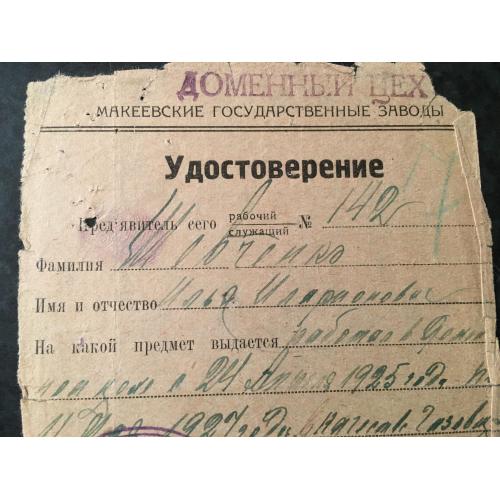 ДОМЕННЫЙ ЦЕХ
МАКЕЕВСКИЕ ГОСУДАРСТВЕННЫЕ ЗАВОДЫ
Удостоверение
Пред'явитель сего рабочий
служащий № 142
Фамилия Шевченко
Имя и отчество Илья
На какой предмет выдается работал в
с 24 1925 год
11 1927 год